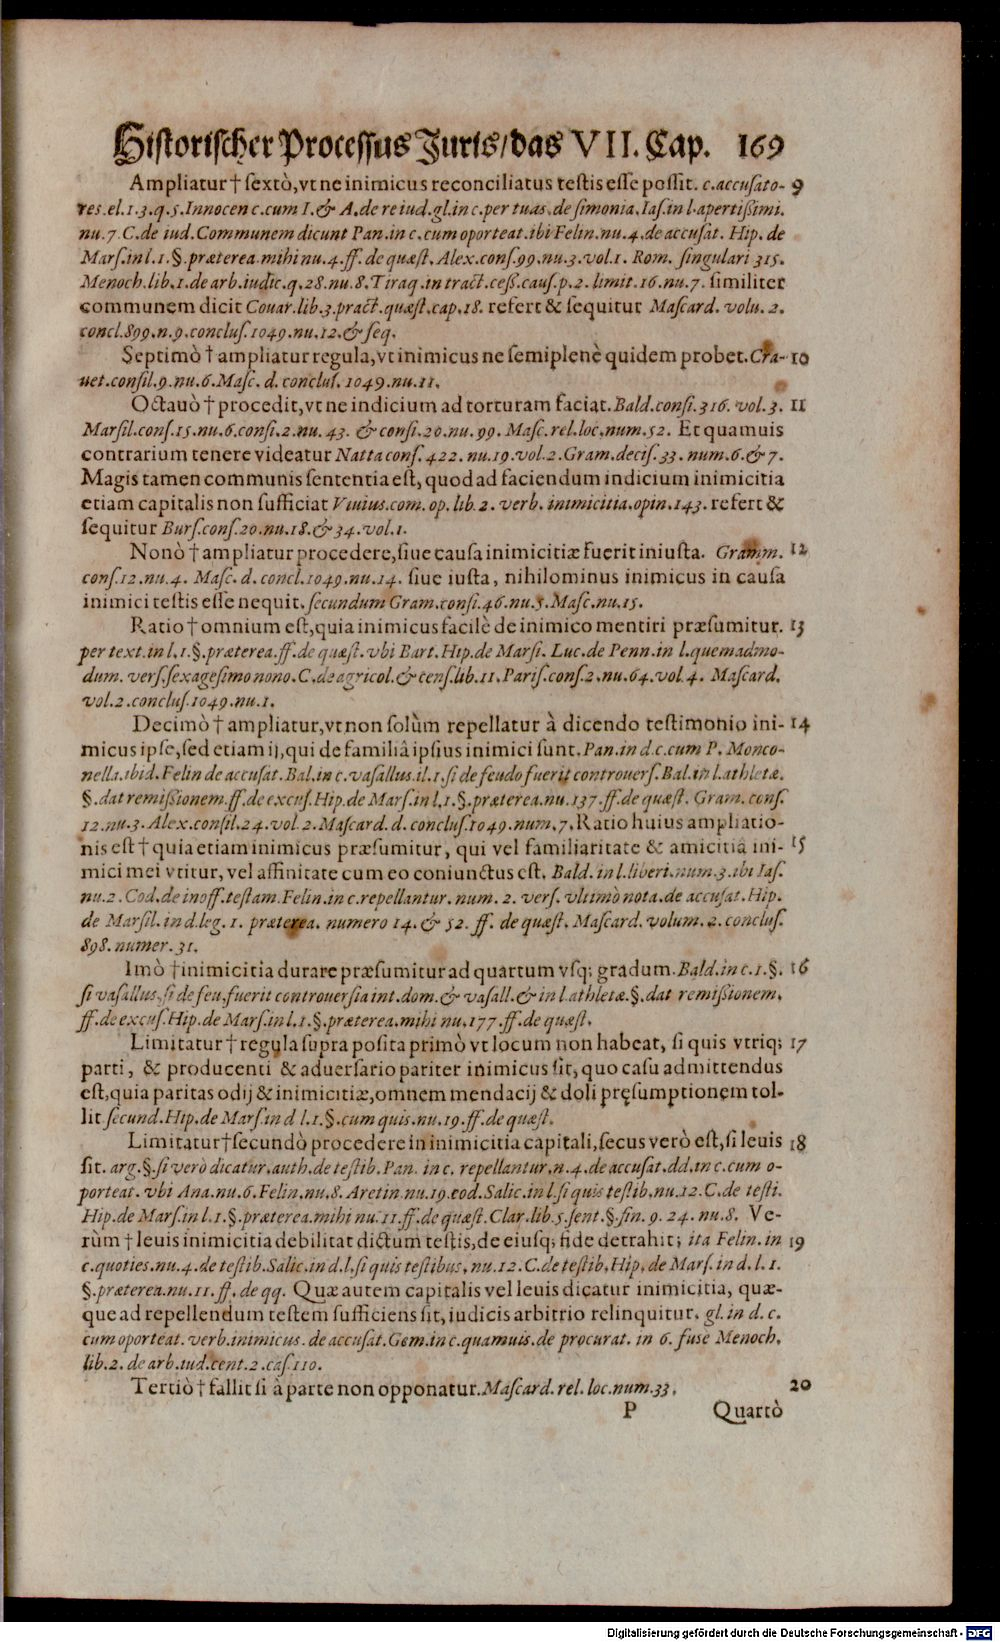 Historischer Processus Juris/das VII. Cap. 169
Ampliatur † sextò, vt ne inimicus reconciliatus testis esse possit. c. accusato- 9
res. el. 1. 3. q. 5. Innocen c. cum I. & A. de re iud. gl. in c. per tuas. de simonia. Ias. in l. apertißimi.
nu. 7. C. de iud. Communem dicunt Pan. in c. cum oporteat. ibi Felin. nu. 4. de accusat. Hip. de
Mars. in l. 1. §. præterea. mihi nu. 4. ff. de quæst. Alex. cons. 99. nu. 3. vol. 1. Rom. singulari 315.
Menoch. lib. 1. de arb. iudic. q. 28. nu. 8. Tiraq. in tract. ceß. caus. p. 2. limit. 16. nu. 7. similiter
communem dicit Couar. lib. 3. pract. quæst. cap. 18. refert & sequitur Mascard. volu. 2.
concl. 899. n. 9. conclus. 1049. nu. 12. & seq.
Septimò † ampliatur regula, vt inimicus ne semiplenè quidem probet. Cra- 10
uet. consil. 9. nu. 6. Masc. d. conclus. 1049. nu. 11.
Octauò † procedit, vt ne indicium ad torturam faciat. Bald. consi. 316. vol. 3. 11
Marsil. cons. 15. nu. 6. consi. 2. nu. 43. & consi. 20. nu. 99. Masc. rel. loc. num. 52. Et quamuis
contrarium tenere videatur Natta cons. 422. nu. 19. vol. 2. Gram. decis. 33. num. 6. & 7.
Magis tamen communis sententia est, quod ad faciendum indicium inimicitia
etiam capitalis non sufficiat Viuius. com. op. lib. 2. verb. inimicitia. opin. 143. refert &
sequitur Burs. cons. 20. nu. 18. & 34. vol. 1.
Nonò † ampliatur procedere, siue causa inimicitiæ fuerit iniusta. Gramm. 12
cons. 12. nu. 4. Masc. d. concl. 1049. nu. 14. siue iusta, nihilominus inimicus in causa
inimici testis esse nequit. secundum Gram. consi. 46. nu. 5. Masc. nu. 15.
Ratio † omnium est, quia inimicus facilè de inimico mentiri præsumitur. 13
per text. in l. 1. §. præterea. ff. de quæst. vbi Bart. Hip. de Marsi. Luc. de Penn. in l. quemadmo-
dum. vers. sexagesimo nono. C. de agricol. & cens. lib. 11. Paris. cons. 2. nu. 64. vol. 4. Mascard.
vol. 2. conclus. 1049. nu. 1.
Decimò † ampliatur, vt non solùm repellatur à dicendo testimonio ini- 14
micus ipse, sed etiam ij, qui de familiâ ipsius inimici sunt. Pan. in d. c. cum P. Monco-
nella. ibid. Felin de accusat. Bal. in c. vasallus. il. 1. si de feudo fuerit controuers. Bal. in l. athletæ.
§. dat remißionem. ff. de excus. Hip. de Mars. in l. 1. §. præterea. nu. 137. ff. de quæst. Gram. cons.
12. nu. 3. Alex. consil. 24. vol. 2. Mascard. d. conclus. 1049. num. 7. Ratio huius ampliatio-
nis est † quia etiam inimicus præsumitur, qui vel familiaritate & amicitiâ ini- 15
mici mei vtitur, vel affinitate cum eo coniunctus est. Bald. in l. liberi. num. 3. ibi Ias.
nu. 2. Cod. de inoff. testam. Felin. in c. repellantur. num. 2. vers. vltimò nota. de accusat. Hip.
de Marsil. in d. leg. 1. præterea. numero 14. & 52. ff. de quæst. Mascard. volum. 2. conclus.
898. numer. 31.
Imò † inimicitia durare præsumitur ad quartum vsq; gradum. Bald. in c. 1. §. 16
si vasallus, si de feu. fuerit controuersia int. dom. & vasall. & in l. athletæ. §. dat remißionem.
ff. de excus. Hip. de Mars. in l. 1. §. præterea. mihi nu. 177. ff. de quæst.
Limitatur † regula supra posita primò vt locum non habeat, si quis vtriq; 17
parti, & producenti & aduersario pariter inimicus sit, quo casu admittendus
est, quia paritas odij & inimicitiæ, omnem mendacij & doli pręsumptionem tol-
lit secund. Hip. de Mars. in d l. 1. §. cum quis. nu. 19. ff. de quæst.
Limitatur † secundò procedere in inimicitia capitali, secus verò est, si leuis 18
sit. arg. §. si verò dicatur. auth. de testib. Pan. in c. repellantur. n. 4. de accusat. dd. in c. cum o-
porteat. vbi Ana. nu. 6. Felin. nu. 8. Aretin. nu. 19. eod. Salic. in l. si quis testib. nu. 12. C. de testi.
Hip. de Mars. in l. 1. §. præterea. mihi nu. 11. ff. de quæst. Clar. lib. 5. sent. §. fin. 9. 24. nu. 8. Ve-
rùm † leuis inimicitia debilitat dictum testis, de eiusq; fide detrahit; ita Felin. in 19
c. quoties. nu. 4. de testib. Salic. in d. l. si quis testibus. nu. 12. C. de testib. Hip. de Mars. in d. l. 1.
§. præterea. nu. 11. ff. de qq. Quæ autem capitalis vel leuis dicatur inimicitia, quæ-
que ad repellendum testem sufficiens sit, iudicis arbitrio relinquitur. gl. in d. c.
cum oporteat. verb. inimicus. de accusat. Gem. in c. quamuis. de procurat. in 6. fuse Menoch.
lib. 2. de arb. iud. cent. 2. cas. 110.
Tertiò † fallit si à parte non opponatur. Mascard. rel. loc. num. 33. 20
P Quartò
Digitalisierung gefördert durch die Deutsche Forschungsgemeinschaft - DFG